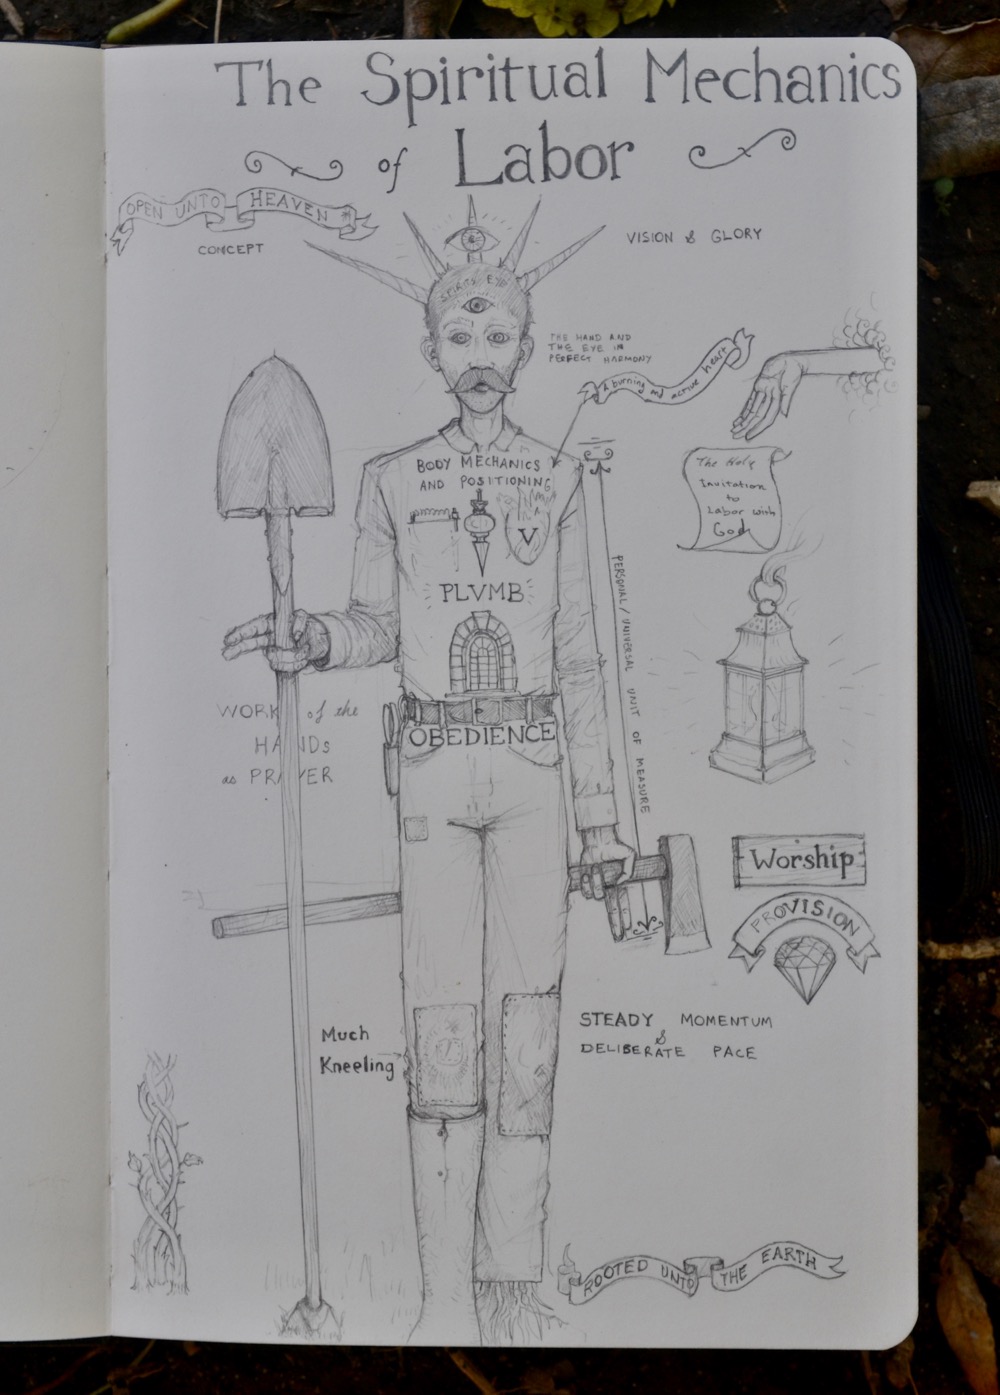 The Spiritual Mechanics
of Labor
OPEN UNTO HEAVEN
CONCEPT
VISION & GLORY
SPIRIT EYE
THE HAND AND
THE EYE IN
PERFECT HARMONY
A burning and active heart
BODY MECHANICS
AND POSITIONING
V
PLVMB
The Holy
Invitation
to
Labor with
God
PERSONAL/UNIVERSAL UNIT OF MEASURE
WORK of the
HANDs
as PRAYER
OBEDIENCE
Worship
PROVISION
Much
Kneeling
STEADY MOMENTUM
&
DELIBERATE PACE
ROOTED UNTO THE EARTH